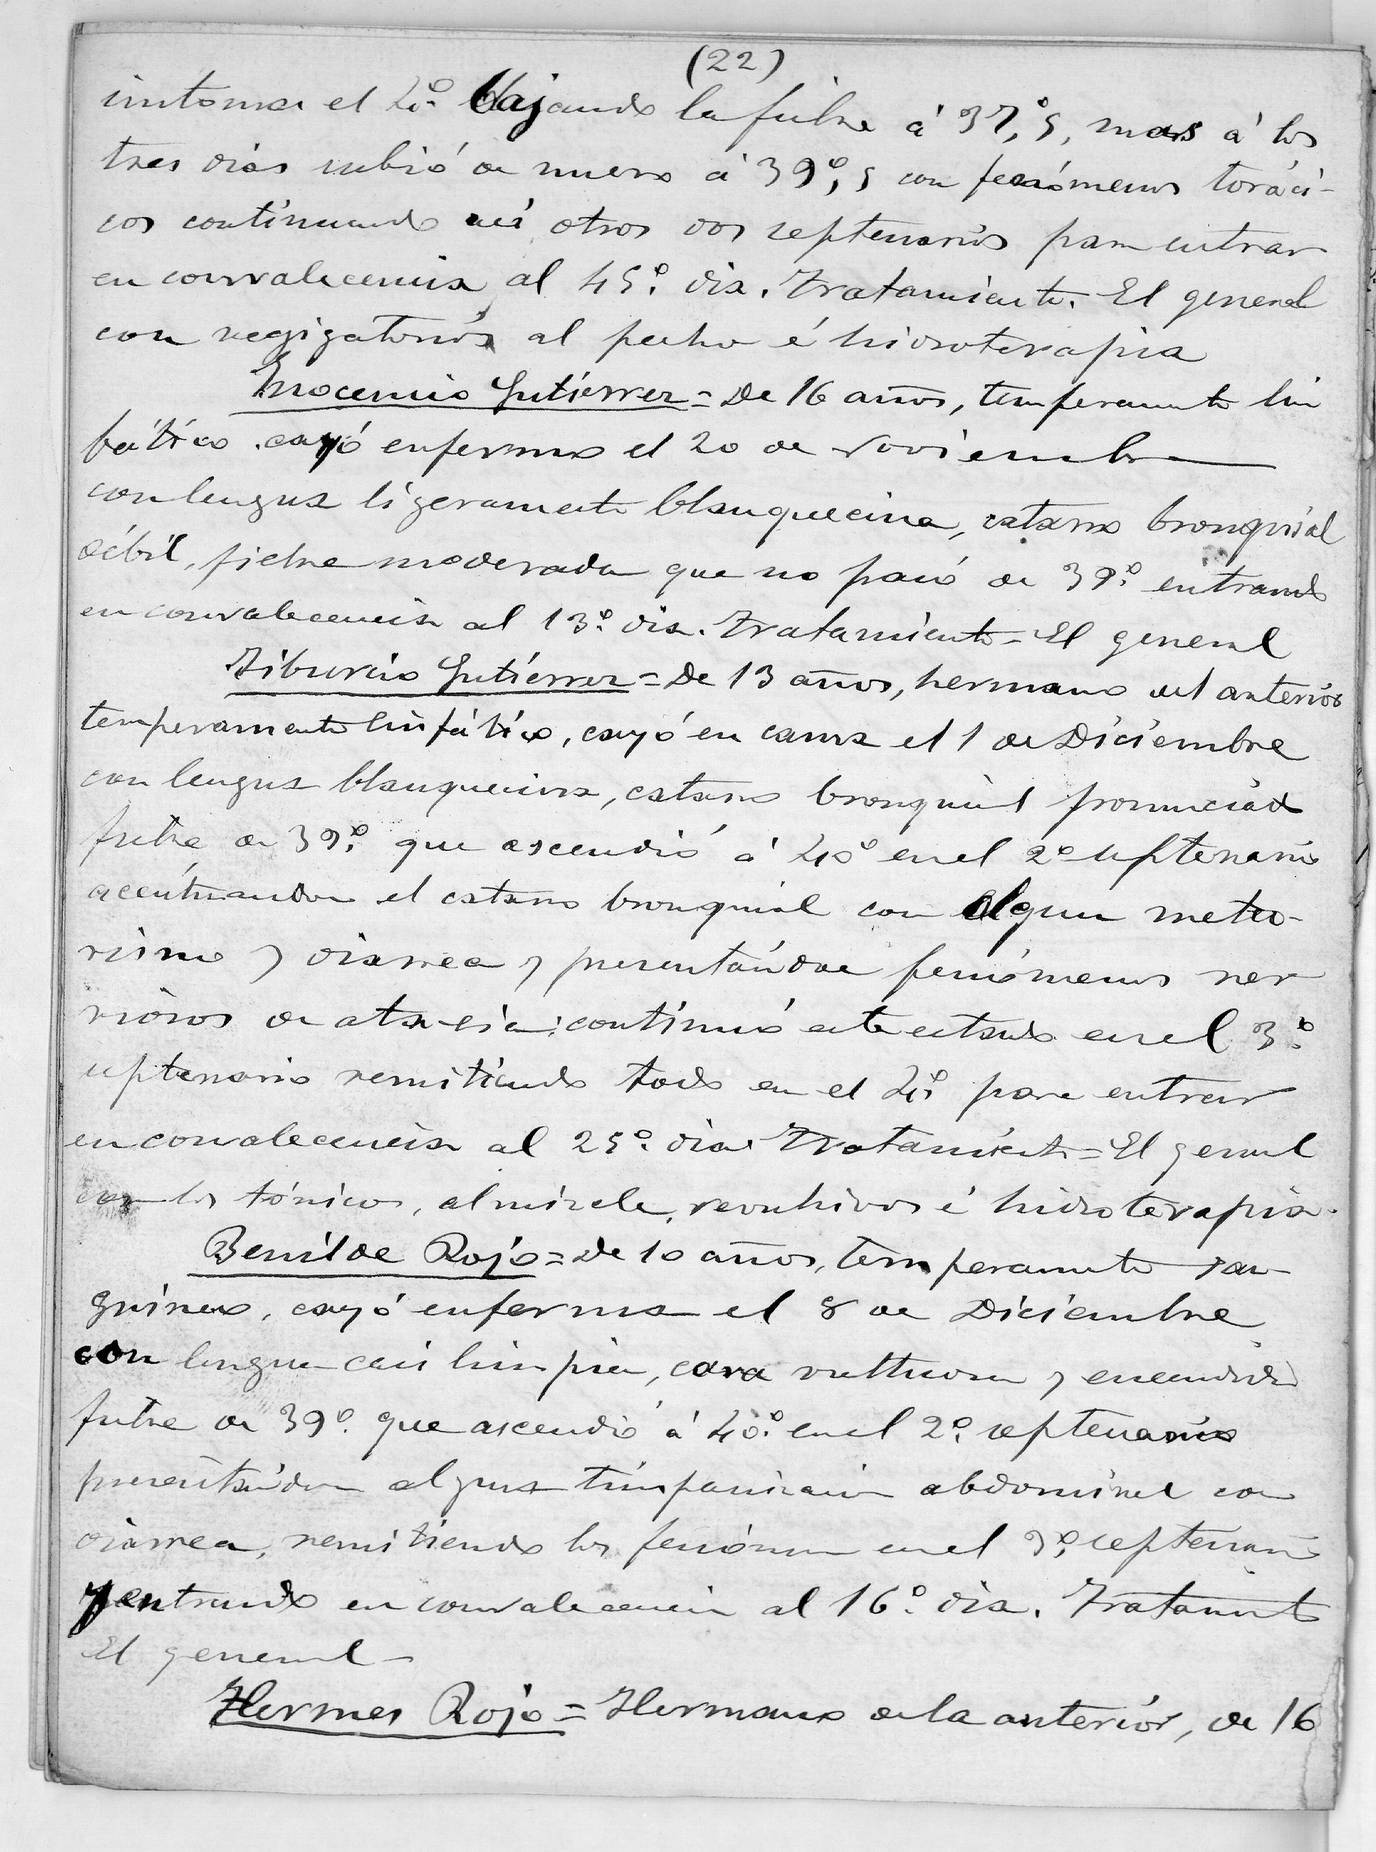 (22)
síntomas el 4º. bajando la fiebre á 37,º5, mas á los
tres dias subió de nuevo á 39º,5 con fenómenos toráci-
cos continuando así otros dos septenarios para entrar
en convalecencia al 45º. dia. Tratamiento. El general
con vegigatorios al pecho é hidroterapia
Inocencio Gutiérrez = De 16 años, temperamento lin
fático. cayó enfermo el 20 de Noviembre
con lengua ligeramente blanquecina, catarro bronquial
débil, fiebre moderada que no pasó de 39º. entrando
en convalecencia al 13º. dia. Tratamiento = El general
Tiburcio Gutiérrez = De 13 años, hermano del anterior
temperamento linfático, cayó en cama el 1 de Diciembre
con lengua blanquecina, catarro bronquial pronunciado
fiebre de 39º. que ascendió á 40º en el 2º septenario
acentuandose el catarro bronquial con algun meteo-
rismo y diarrea y presentándose fenómenos ner
viosos de ataxia: continuó este estado en el 3º.
septenario remitiendo todo en el 4º. para entrar
en convalecencia al 25º. dia. Tratamiento = El general
con los tónicos, almizcle, revulsivos é hidroterapia.
Benilde Rojo = De 10 años, temperamento san
guineo, cayó enferma el 8 de Diciembre
con lengua casi limpia, cara vultuosa y encendida
fiebre de 39º. que ascendió á 40º. en el 2º. septenario
presentándose alguna timpanizacion abdominal con
diarrea, remitiendo los fenómenos en el 3º. septenario
y entrando en convalecencia al 16º. dia. Tratamiento
El general -
Hermes Rojo = Hermano de la anterior, de 16